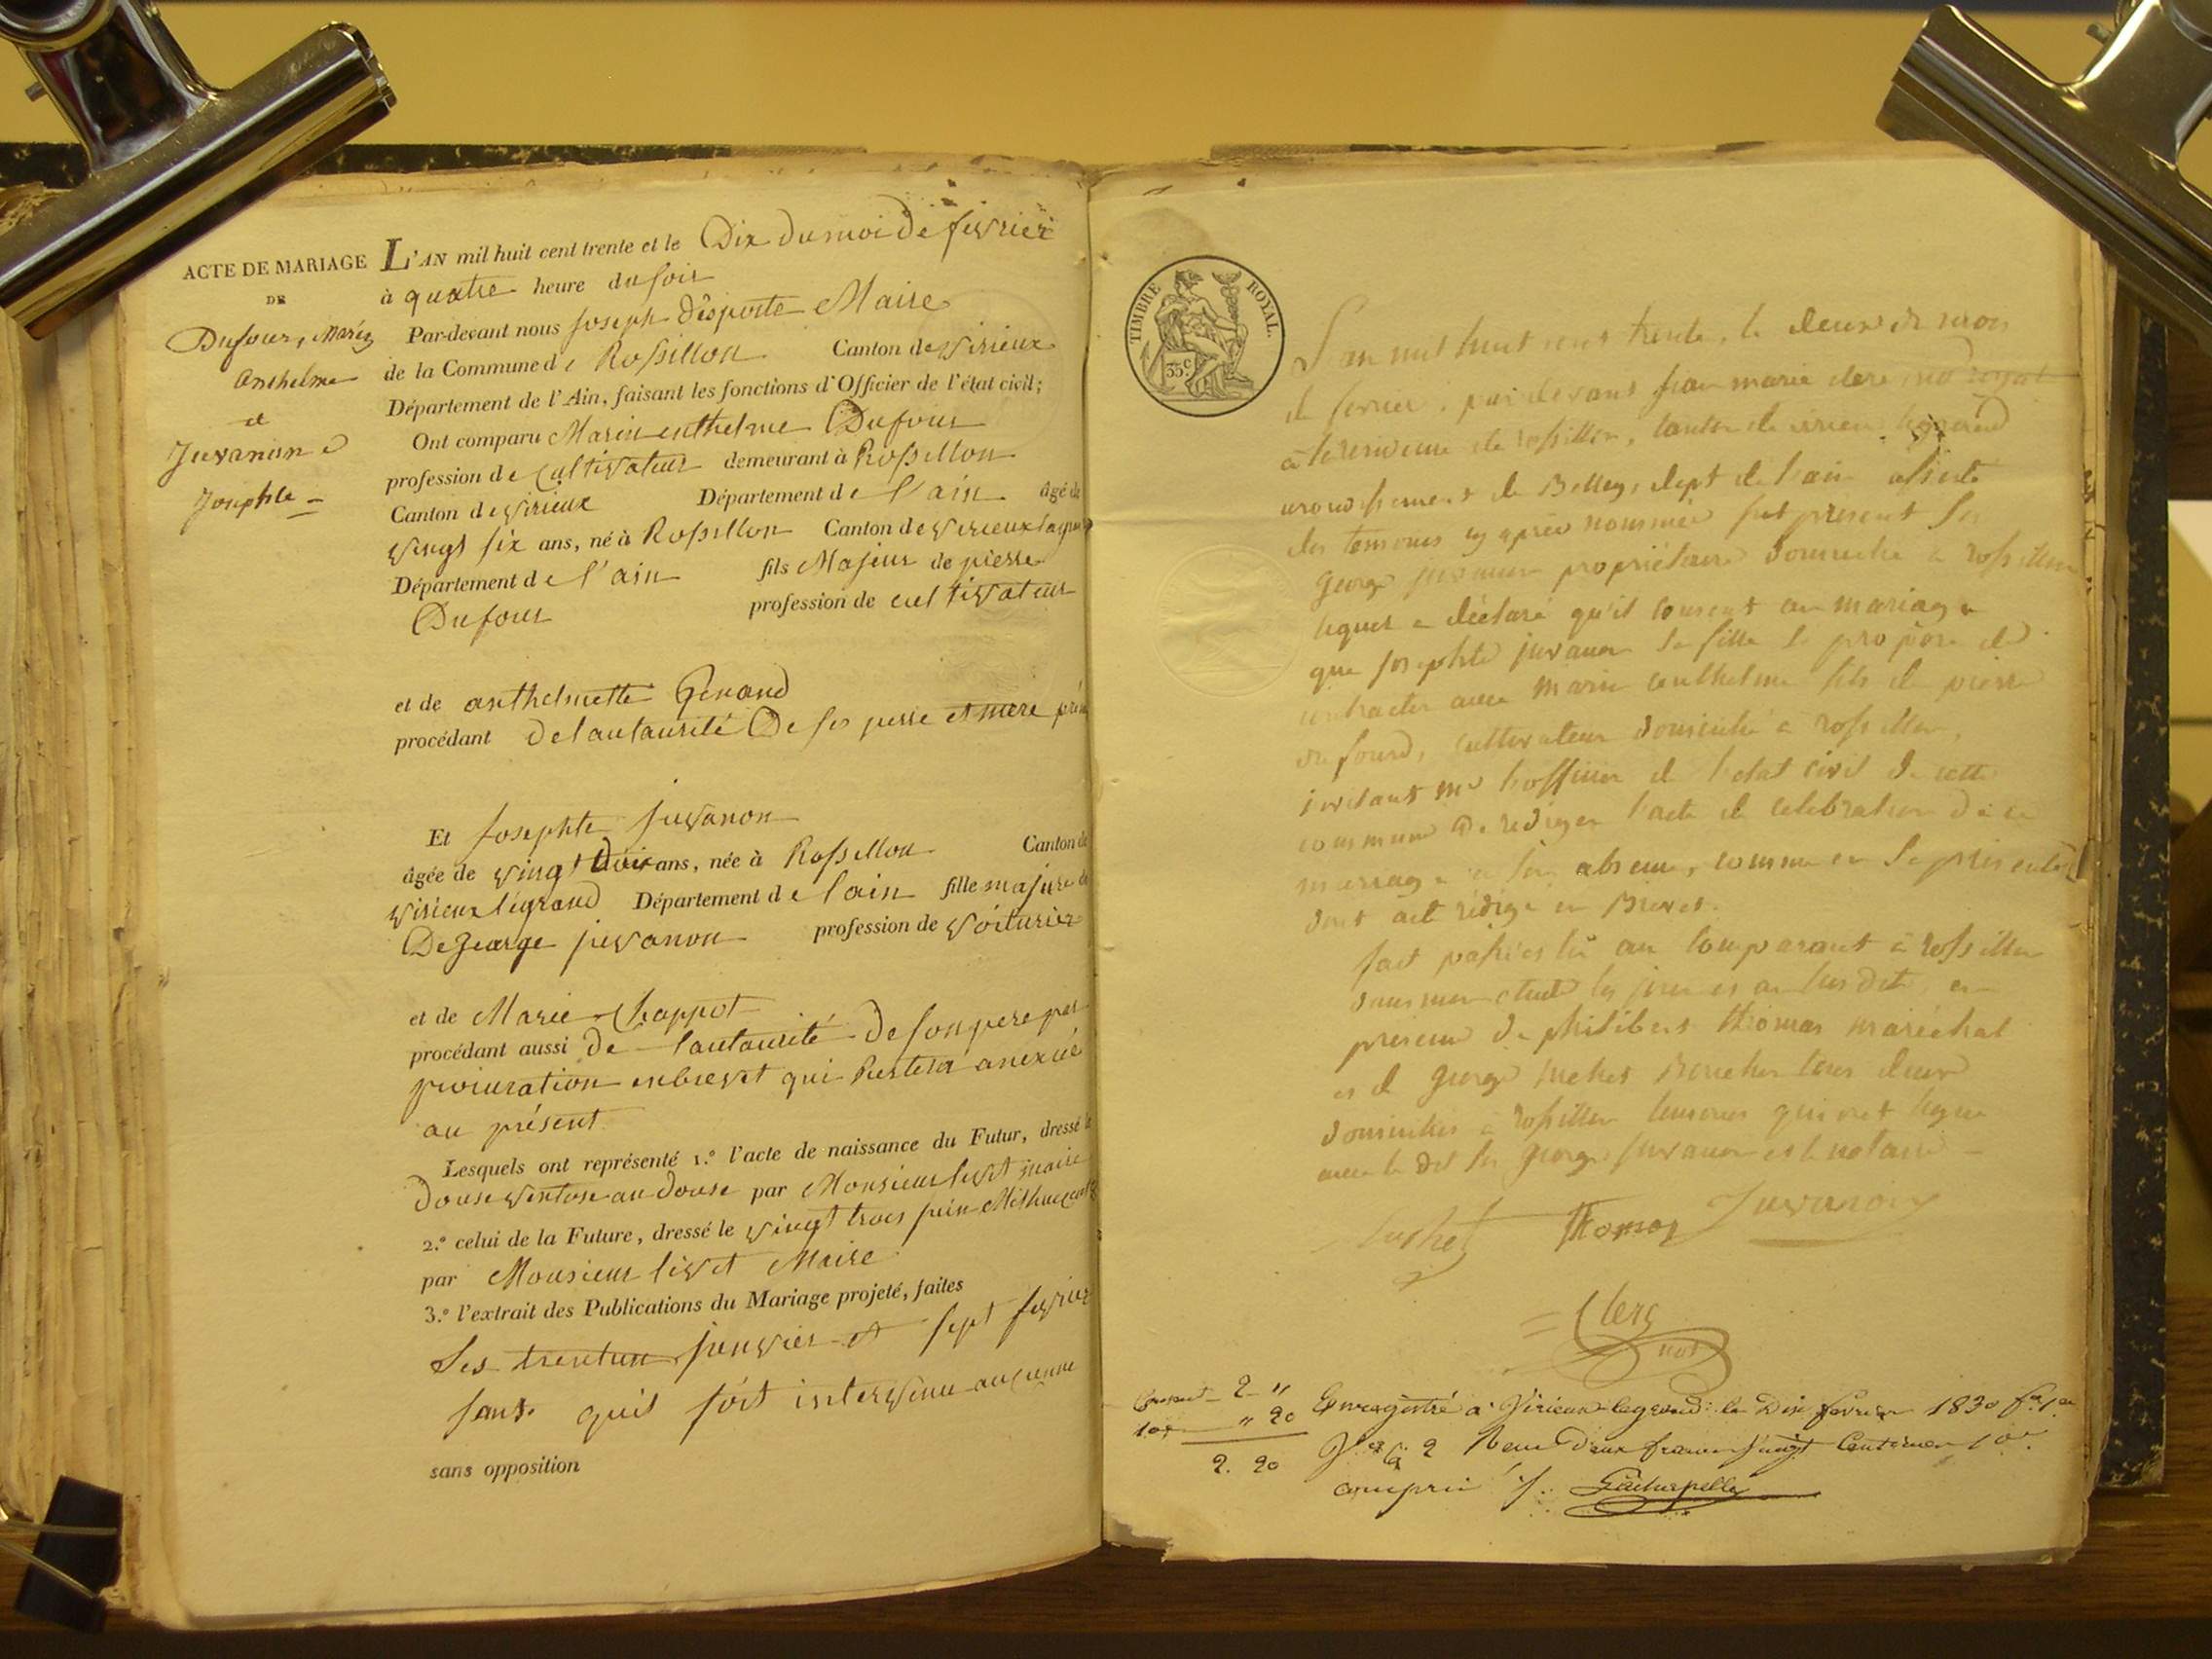 ACTE DE MARIAGE
DE
Dufour, Marin
Anthelme
et
Juvanon
Josephte
L'AN mil huit cent trente et le Dix du moi de fevrier
à quatre heure du soir
Par-devant nous Joseph Desporte Maire
de la Commune de Rossillon Canton de Virieux
Département de l'Ain, faisant les fonctions d'Officier de l'état civil;
Ont comparu Marin enthelme Dufour
profession de Cultivateur demeurant à Rossillon
Canton de Virieux Département de l'ain âgé de
vingt six ans, né à Rossillon Canton de Virieux
Département de l'ain fils Majeur de pierre
Dufour profession de cultivateur
et de anthelmette Genand
procédant de lautaurité De ses perre et mere
Et Josephte juvanon
âgée de vingt ans, née à Rossillon Canton de
Virieux legrand Département de lain fille majure de
De gearge juvanon profession de Voiturier
et de Marie Chappot
procédant aussi de lautaurité de son pere par
procuration enbrevet qui Restera anexué
au présent
Lesquels ont représenté 1.º l'acte de naissance du Futur, dressé le
douse ventose an douse par Monsieur livet maire
2.º celui de la Future, dressé le vingt trois juin Mil huit cent
par Monsieur livet Maire
3.º l'extrait des Publications du Mariage projeté, faites
Les trentun janvier et sept fevrier
sans quil soit intervenu aucunne
sans opposition
TIMBRE ROYAL
35 c.
L'an mil huit cent trente, le deux du mois
de fevrier, par devant jean marie clerc no. royal
à la residence de rossillon, canton de virieu legrand
arondissement de Belley, dept de l'ain assisté
des temoins cy après nommés fut present Sr
George juvanon propriétaire domicilié à rossillon
lequel a déclaré qu'il consent au mariage
que josephte juvanon sa fille se propose de
contracter avec marin anthelme fils de pierre
dufourd, cultivateur domicilié à rossillon,
invitant mr l'officier de l'etat civil de cette
commune de rediger l'acte de celebration de ce
mariage en son absence, comme en sa présence
dont acte rédigé en Brevet.
fait passé et lu au comparant à rossillon
dans mon etude les jour et an susdits, en
presence de philibert thomas maréchal
et de george suchet Boucher tous deux
domiciliés à rossillon temoins qui ont signé
avec le dit sr george juvanon et le notaire
Suchet Thomas Juvanon
Clerc
not
2 "
10e " 20
2. 20
Enregistré à Virieux-legrand le Dix fevrier 1830
Reçu Deux francs vingt Centimes 10e
compris Lachapelle